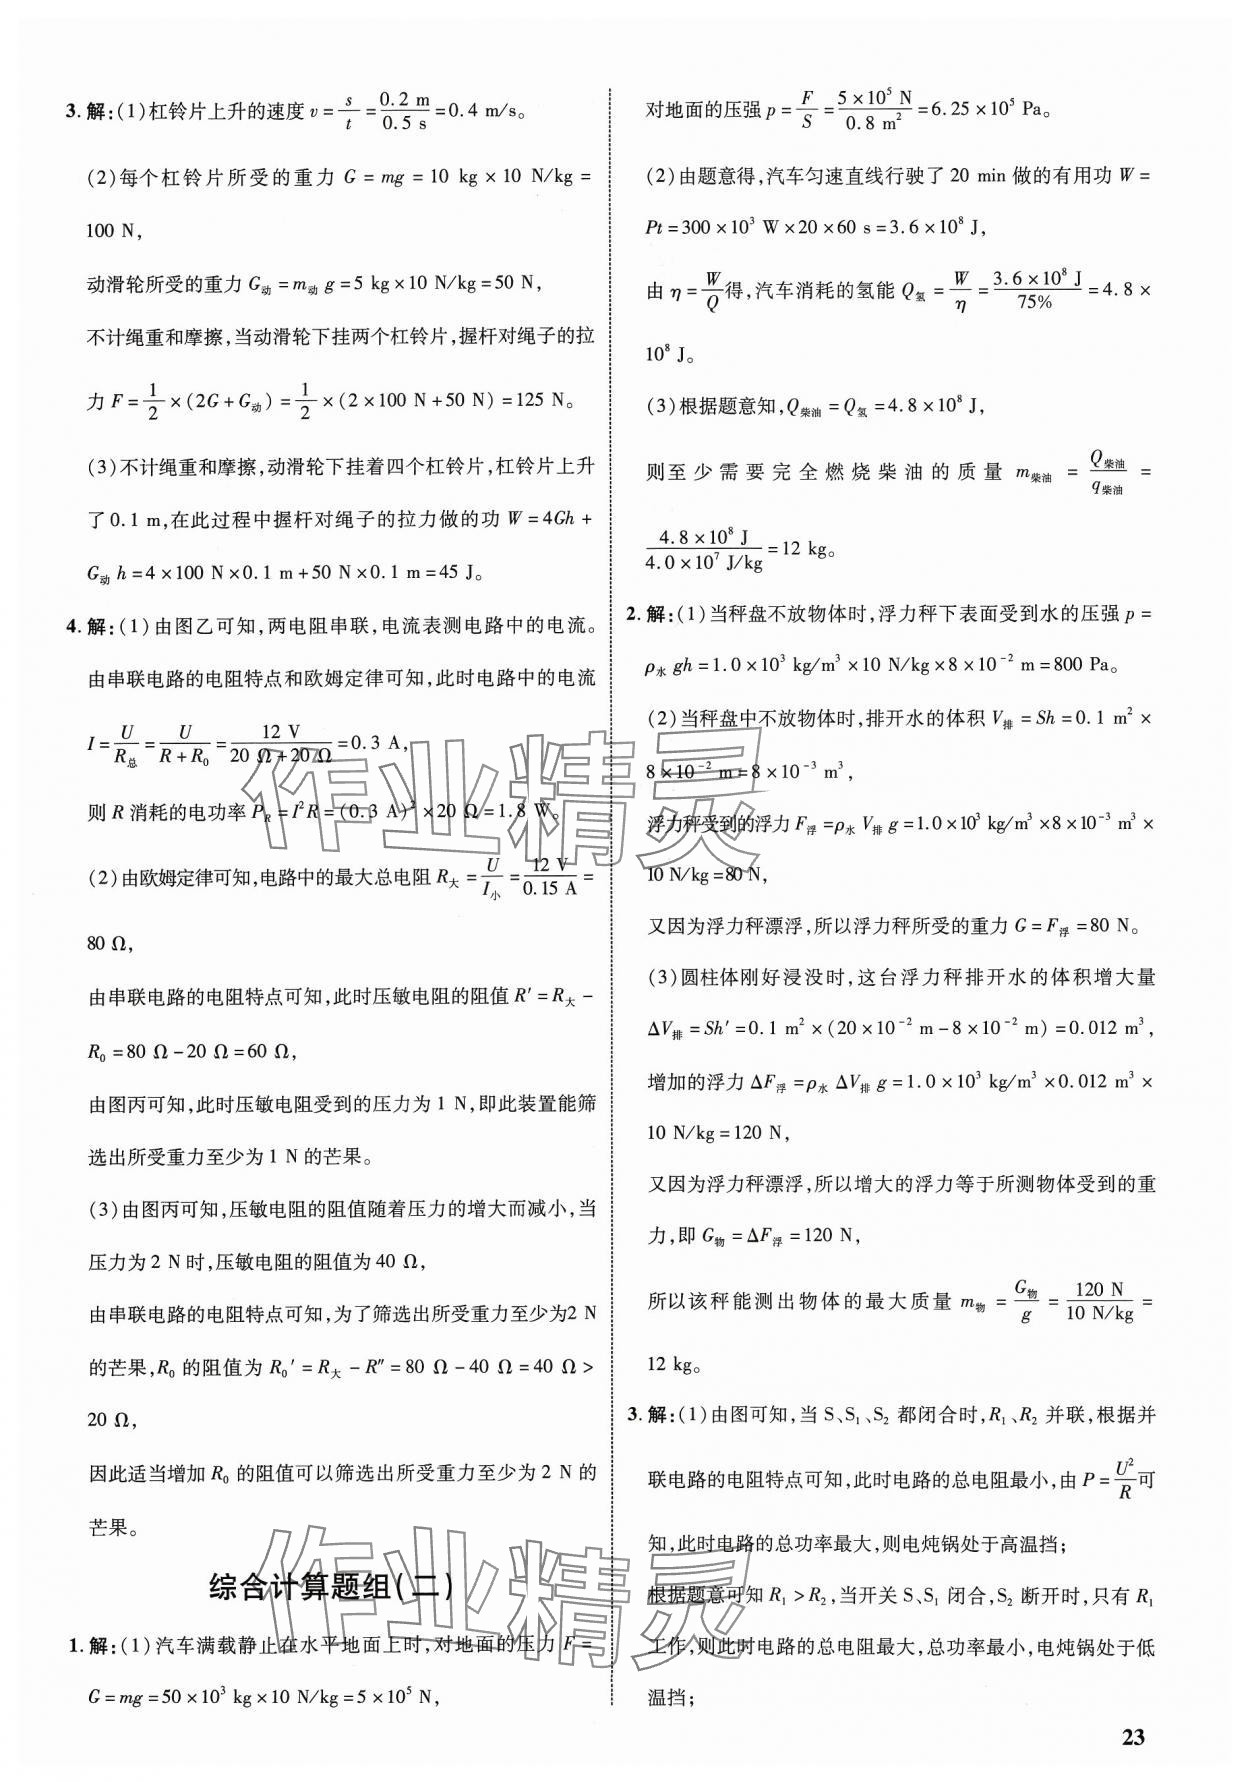 3. 解:(1)杠铃片上升的速度 v=s/t=0.2 m/0.5 s=0.4 m/s。
(2)每个杠铃片所受的重力 G=mg=10 kg×10 N/kg=
100 N,
动滑轮所受的重力 G动=m动 g=5 kg×10 N/kg=50 N,
不计绳重和摩擦,当动滑轮下挂两个杠铃片,握杆对绳子的拉
力 F=1/2×(2G+G动)=1/2×(2×100 N+50 N)=125 N。
(3)不计绳重和摩擦,动滑轮下挂着四个杠铃片,杠铃片上升
了0.1 m,在此过程中握杆对绳子的拉力做的功 W=4Gh+
G动 h=4×100 N×0.1 m+50 N×0.1 m=45 J。
4. 解:(1)由图乙可知,两电阻串联,电流表测电路中的电流。
由串联电路的电阻特点和欧姆定律可知,此时电路中的电流
I=U/R总=U/(R+R₀)=12 V/(20 Ω+20 Ω)=0.3 A,
则 R 消耗的电功率 P_R=I²R=(0.3 A)²×20 Ω=1.8 W。
(2)由欧姆定律可知,电路中的最大总电阻 R大=U/I小=12 V/0.15 A=
80 Ω,
由串联电路的电阻特点可知,此时压敏电阻的阻值 R′=R大-
R₀=80 Ω-20 Ω=60 Ω,
由图丙可知,此时压敏电阻受到的压力为 1 N,即此装置能筛
选出所受重力至少为 1 N 的芒果。
(3)由图丙可知,压敏电阻的阻值随着压力的增大而减小,当
压力为 2 N 时,压敏电阻的阻值为 40 Ω,
由串联电路的电阻特点可知,为了筛选出所受重力至少为2 N
的芒果,R₀ 的阻值为 R₀′=R大-R″=80 Ω-40 Ω=40 Ω>
20 Ω,
因此适当增加 R₀ 的阻值可以筛选出所受重力至少为 2 N 的
芒果。
综合计算题组(二)
1. 解:(1)汽车满载静止在水平地面上时,对地面的压力 F=
G=mg=50×10³ kg×10 N/kg=5×10⁵ N,
对地面的压强 p=F/S=5×10⁵ N/0.8 m²=6.25×10⁵ Pa。
(2)由题意得,汽车匀速直线行驶了 20 min 做的有用功 W=
Pt=300×10³ W×20×60 s=3.6×10⁸ J,
由 η=W/Q得,汽车消耗的氢能 Q氢=W/η=3.6×10⁸ J/75%=4.8×
10⁸ J。
(3)根据题意知,Q柴油=Q氢=4.8×10⁸ J,
则至少需要完全燃烧柴油的质量 m柴油=Q柴油/q柴油=
4.8×10⁸ J/4.0×10⁷ J/kg=12 kg。
2. 解:(1)当秤盘不放物体时,浮力秤下表面受到水的压强 p=
ρ水 gh=1.0×10³ kg/m³×10 N/kg×8×10⁻² m=800 Pa。
(2)当秤盘中不放物体时,排开水的体积 V排=Sh=0.1 m²×
8×10⁻² m=8×10⁻³ m³,
浮力秤受到的浮力 F浮=ρ水 V排 g=1.0×10³ kg/m³×8×10⁻³ m³×
10 N/kg=80 N,
又因为浮力秤漂浮,所以浮力秤所受的重力 G=F浮=80 N。
(3)圆柱体刚好浸没时,这台浮力秤排开水的体积增大量
ΔV排=Sh′=0.1 m²×(20×10⁻² m-8×10⁻² m)=0.012 m³,
增加的浮力 ΔF浮=ρ水 ΔV排 g=1.0×10³ kg/m³×0.012 m³×
10 N/kg=120 N,
又因为浮力秤漂浮,所以增大的浮力等于所测物体受到的重
力,即 G物=ΔF浮=120 N,
所以该秤能测出物体的最大质量 m物=G物/g=120 N/10 N/kg=
12 kg。
3. 解:(1)由图可知,当 S、S₁、S₂ 都闭合时,R₁、R₂ 并联,根据并
联电路的电阻特点可知,此时电路的总电阻最小,由 P=U²/R可
知,此时电路的总功率最大,则电炖锅处于高温挡;
根据题意可知 R₁>R₂,当开关 S、S₁ 闭合,S₂ 断开时,只有 R₁
工作,则此时电路的总电阻最大,总功率最小,电炖锅处于低
温挡;
23
作业精灵
作业精灵